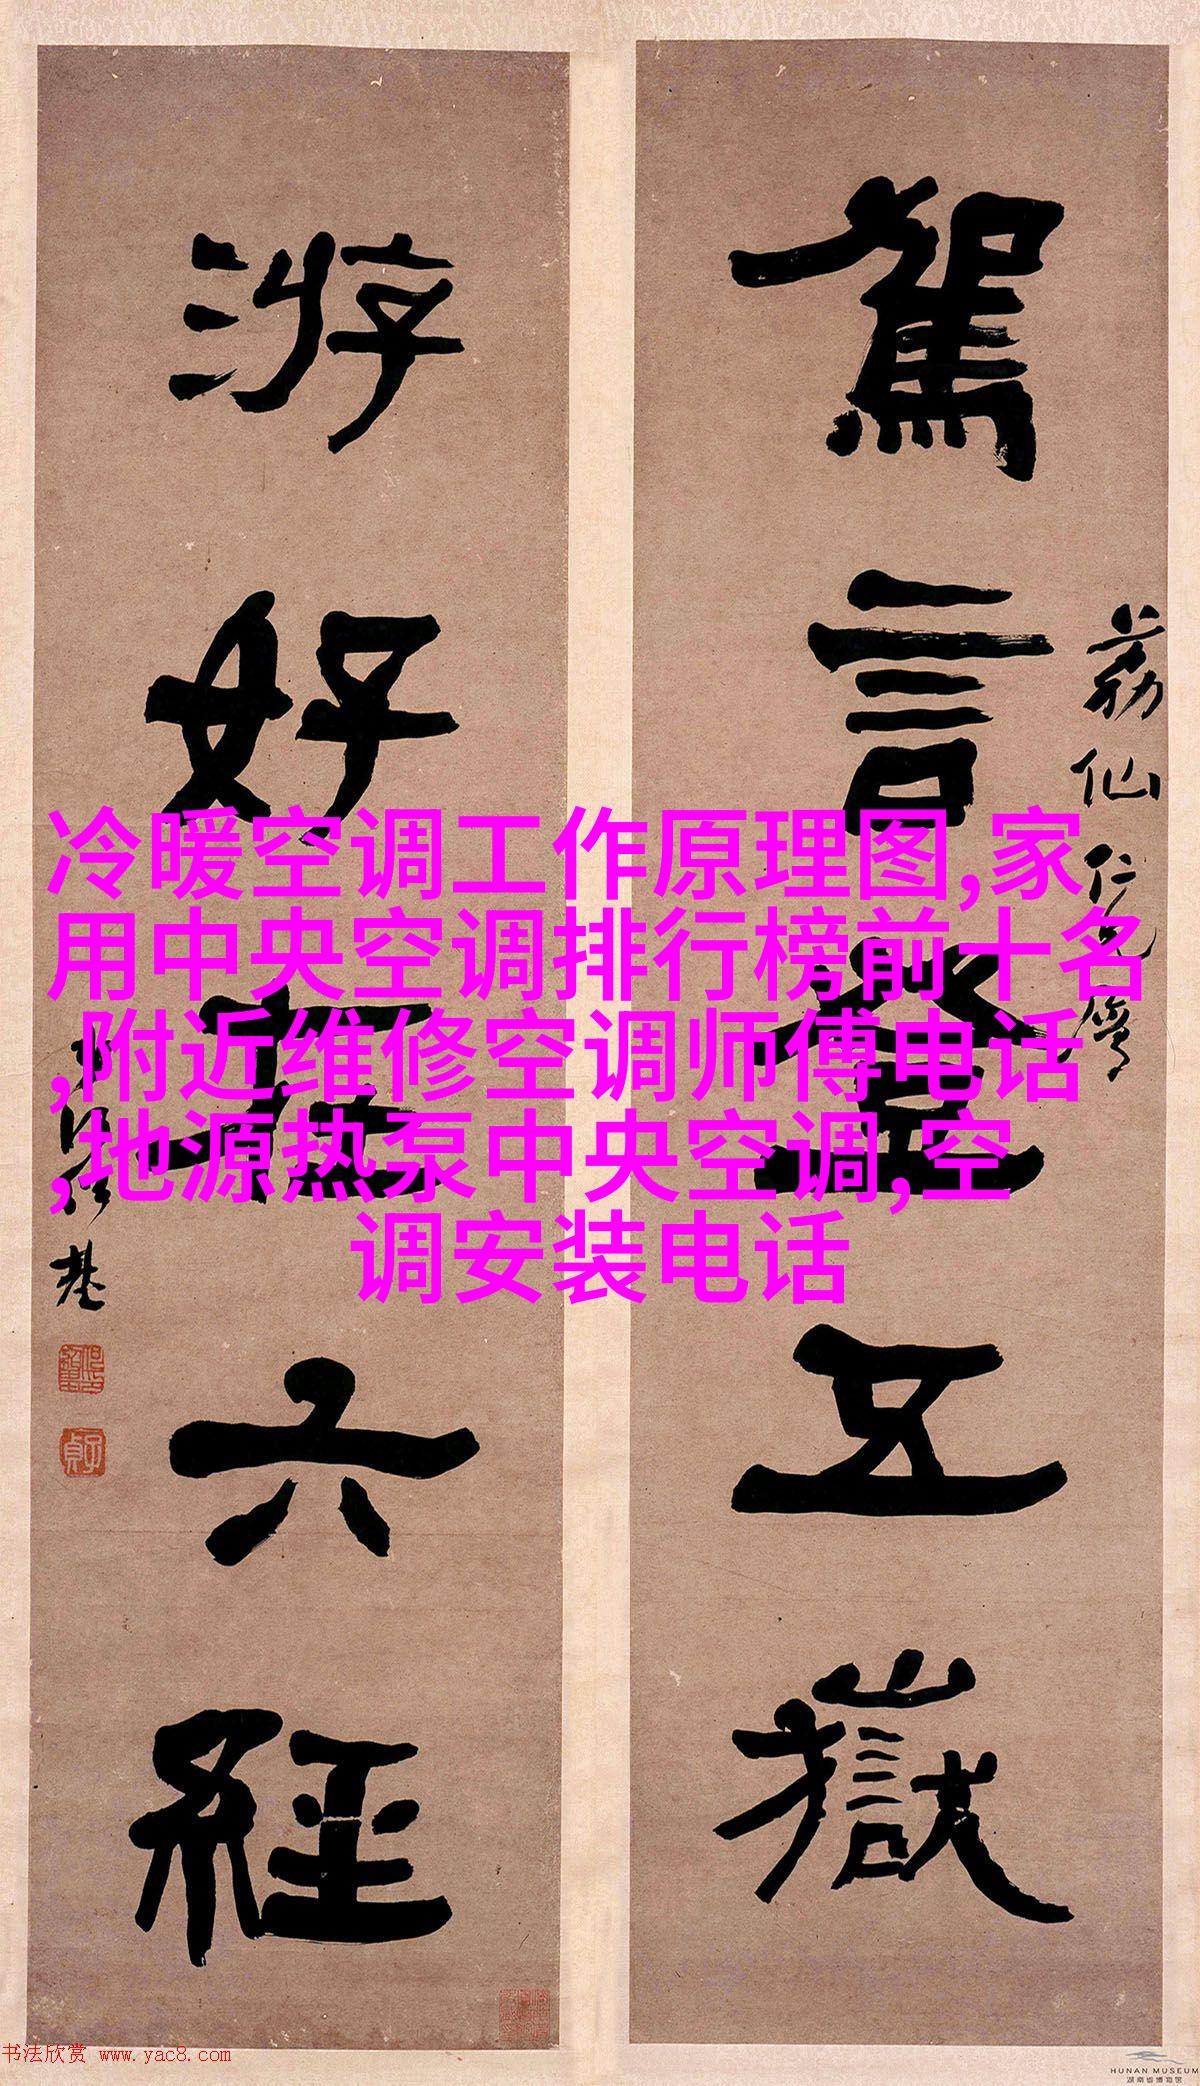 駕言登五嶽
荔仙仁兄属
游好在六經
何紹基
冷暖空调工作原理图,家
用中央空调排行榜前十名
,附近维修空调师傅电话
,地源热泵中央空调,空
调安装电话
子貞
书法欣赏 www.yac8.com
HUNAN MUSEUM
湖南省博物馆